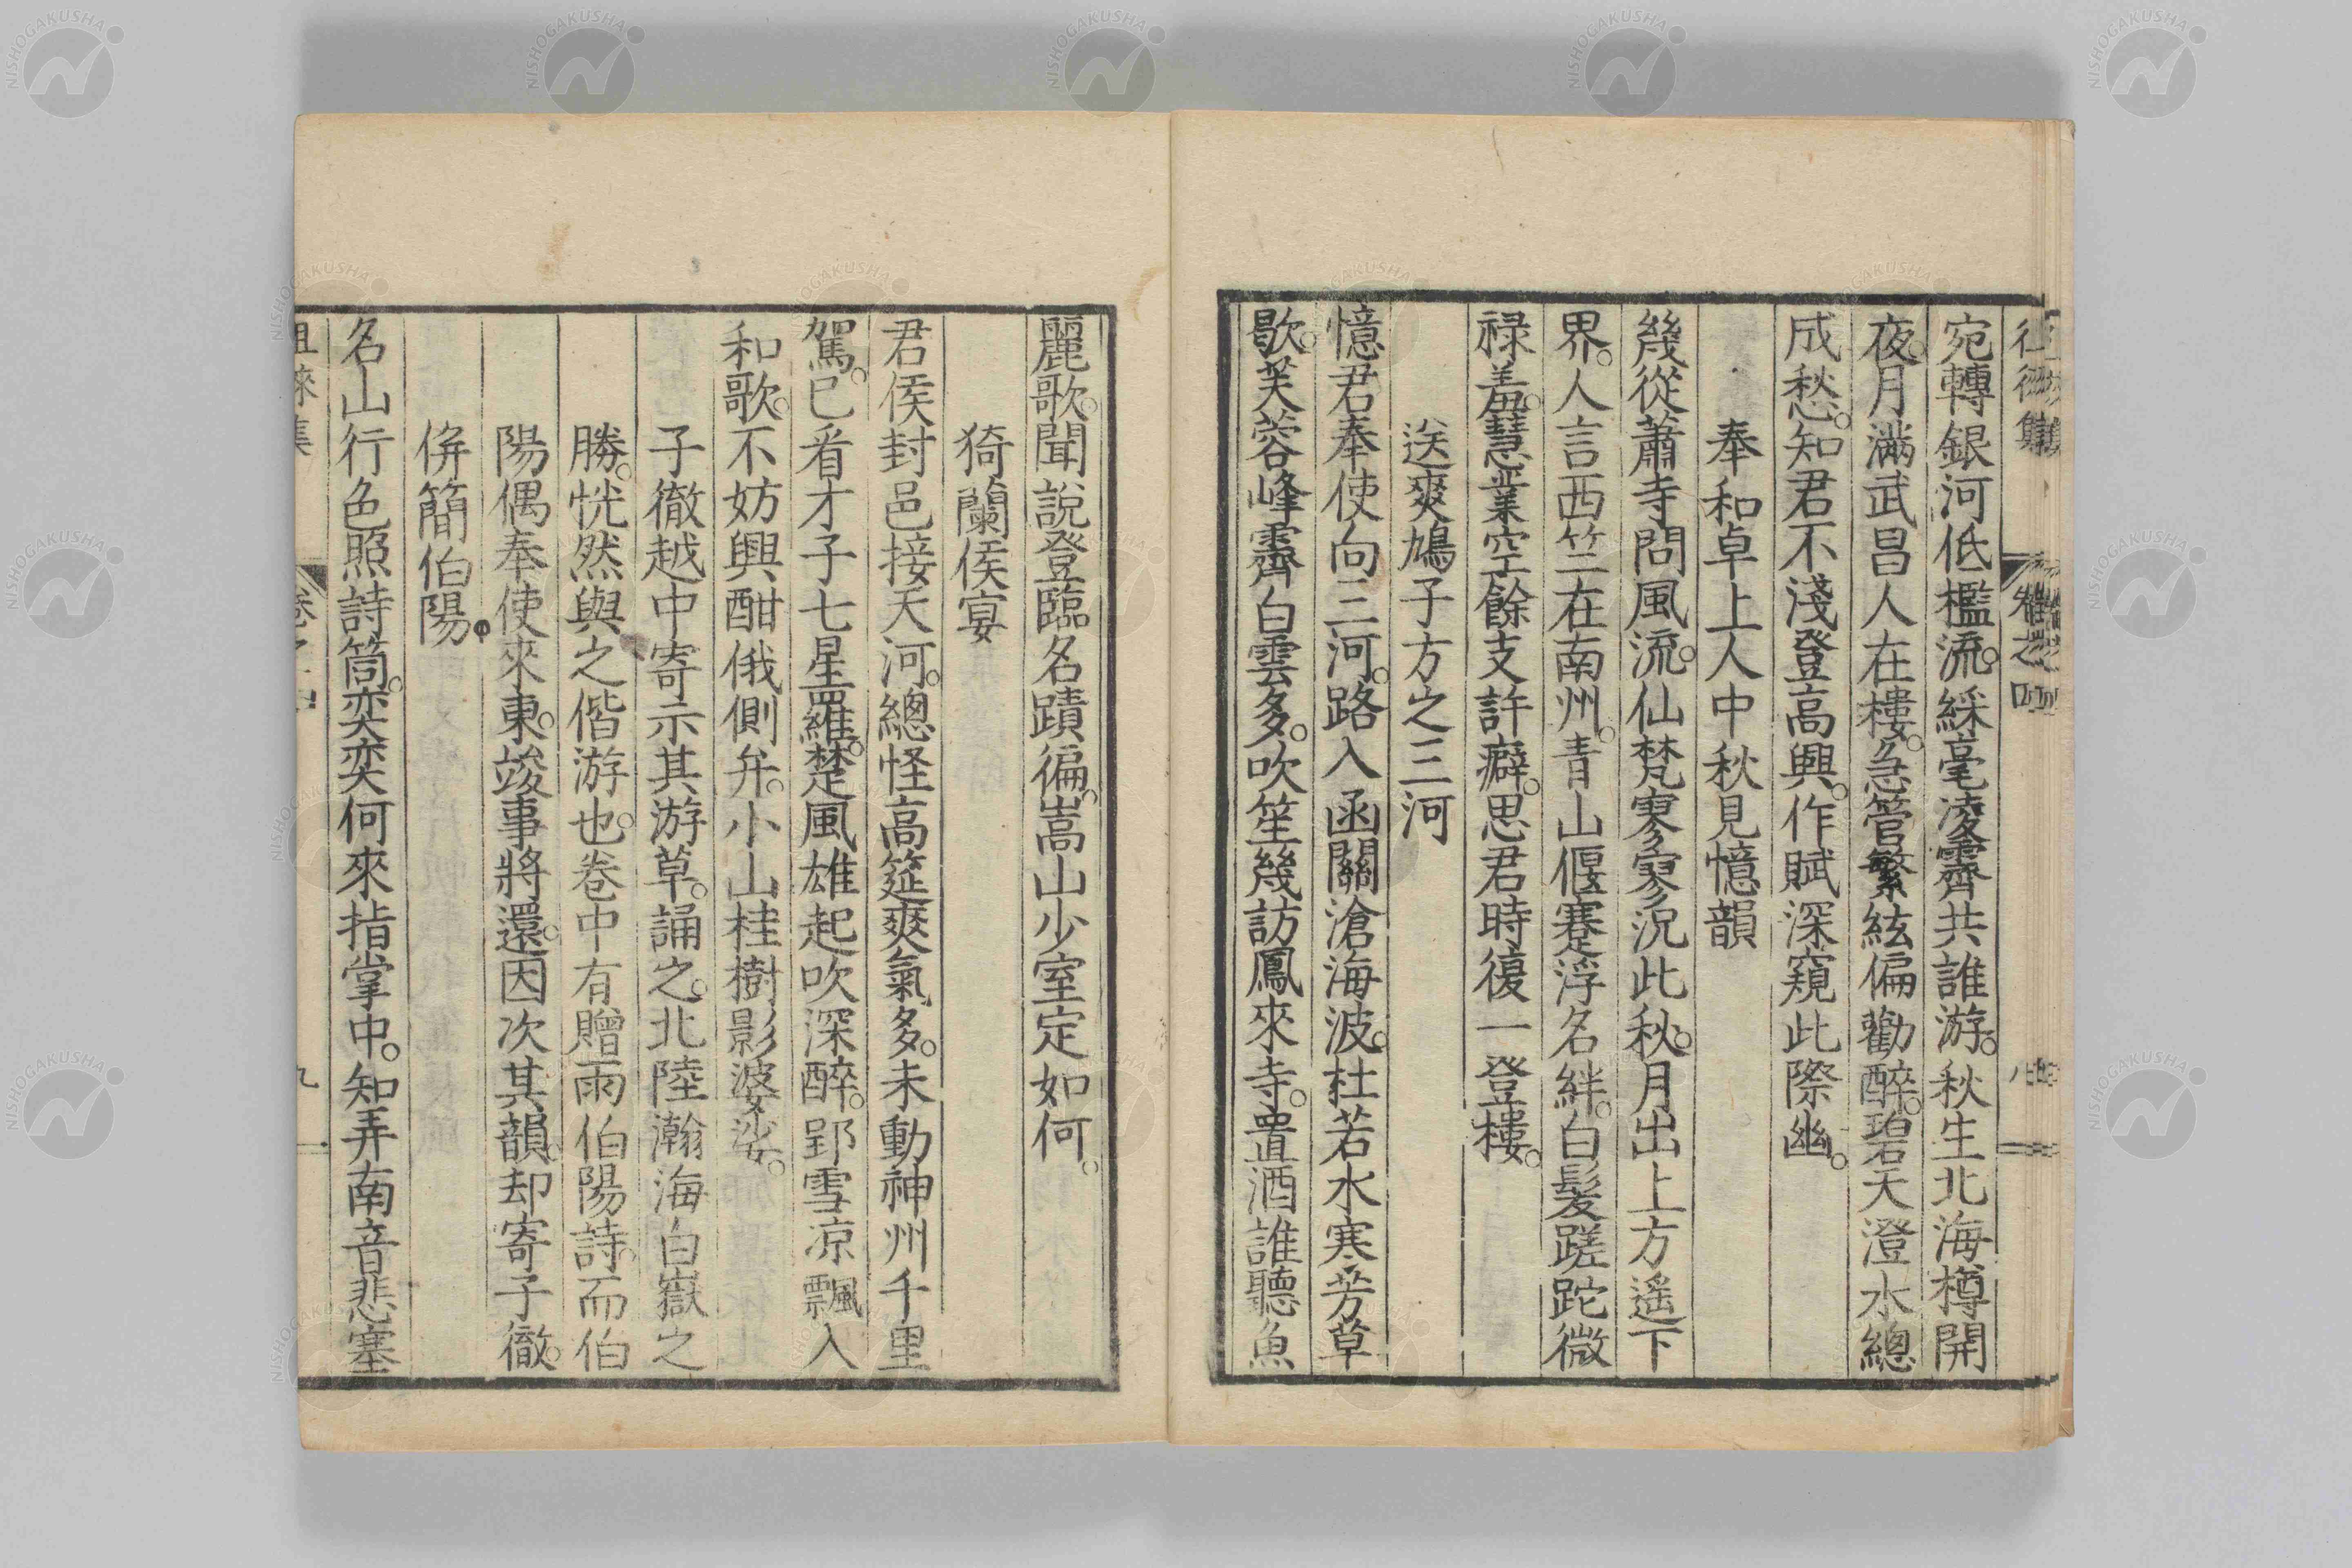 宛轉銀河低檻流。綵毫凌霽共誰游。秋生北海樽開
夜。月滿武昌人在樓。急管繁絃偏勸醉。碧天澄水總
成愁。知君不淺登高興。作賦深窺此際幽。
奉和卓上人中秋見憶韻
幾從蕭寺問風流。仙梵寥寥況此秋。月出上方遙下
界。人言西竺在南州。青山偃蹇浮名絆。白髮蹉跎微
祿羞。慧業空餘支許癖。思君時復一登樓。
送爽鳩子方之三河
憶君奉使向三河。路入函關滄海波。杜若水寒芳草
歇。芙蓉峰霽白雲多。吹笙幾訪鳳來寺。置酒誰聽魚
麗歌。聞說登臨名蹟徧。嵩山少室定如何。
猗蘭侯宴
君侯封邑接天河。總怪高筵爽氣多。未動神州千里
駕。已看才子七星羅。楚風雄起吹深醉。郢雪凉飄入
和歌。不妨興酣俄側弁。小山桂樹影婆娑。
子徹越中寄示其游草。誦之。北陸瀚海白嶽之
勝。恍然與之偕游也。卷中有贈雨伯陽詩。而伯
陽偶奉使來東。竣事將還。因次其韻。却寄子徹。
併簡伯陽
名山行色照詩筒。奕奕何來指掌中。知弄南音悲塞
徂徠集
卷之四
九
NISHOGAKUSHA